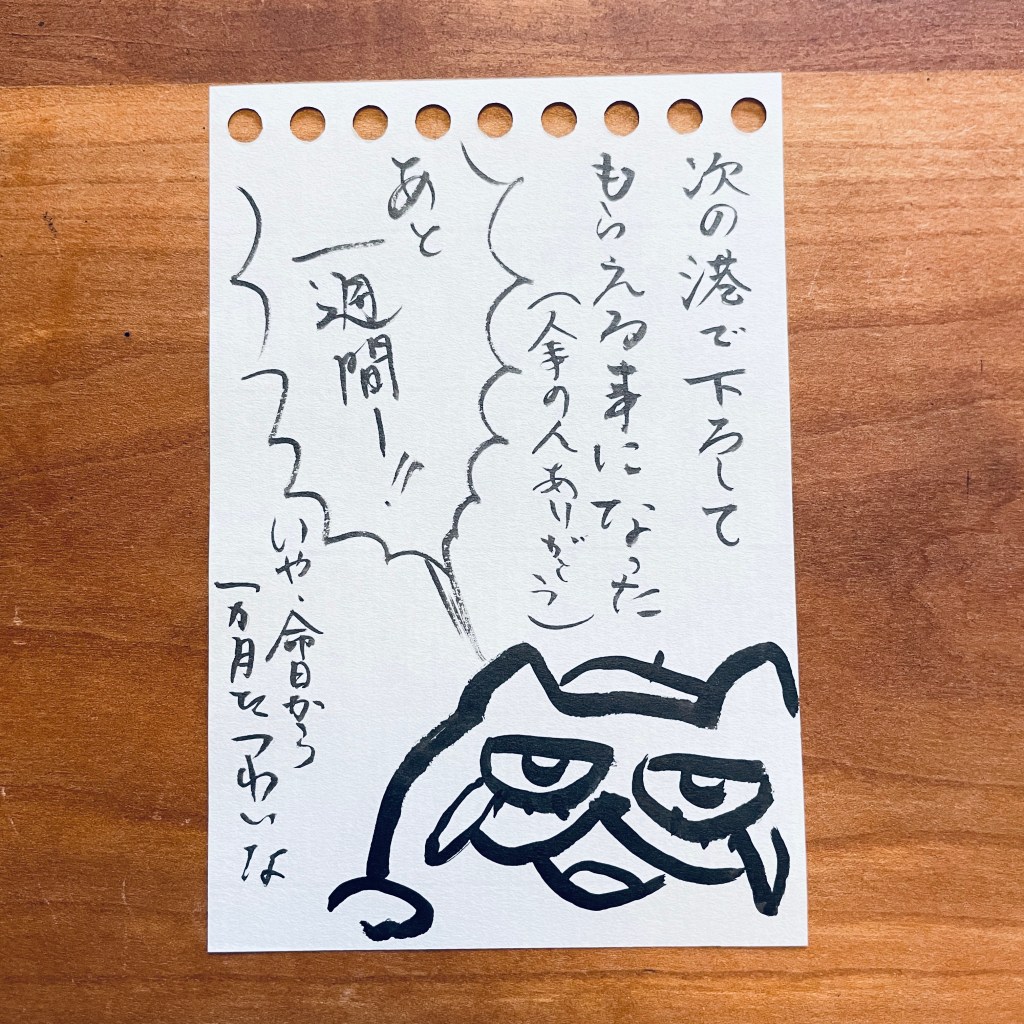 次の港で下ろして
もらえる事になった
(人事の人ありがとう)
あと
一週間ー!!
いや、命日から
一ヵ月たつわいな